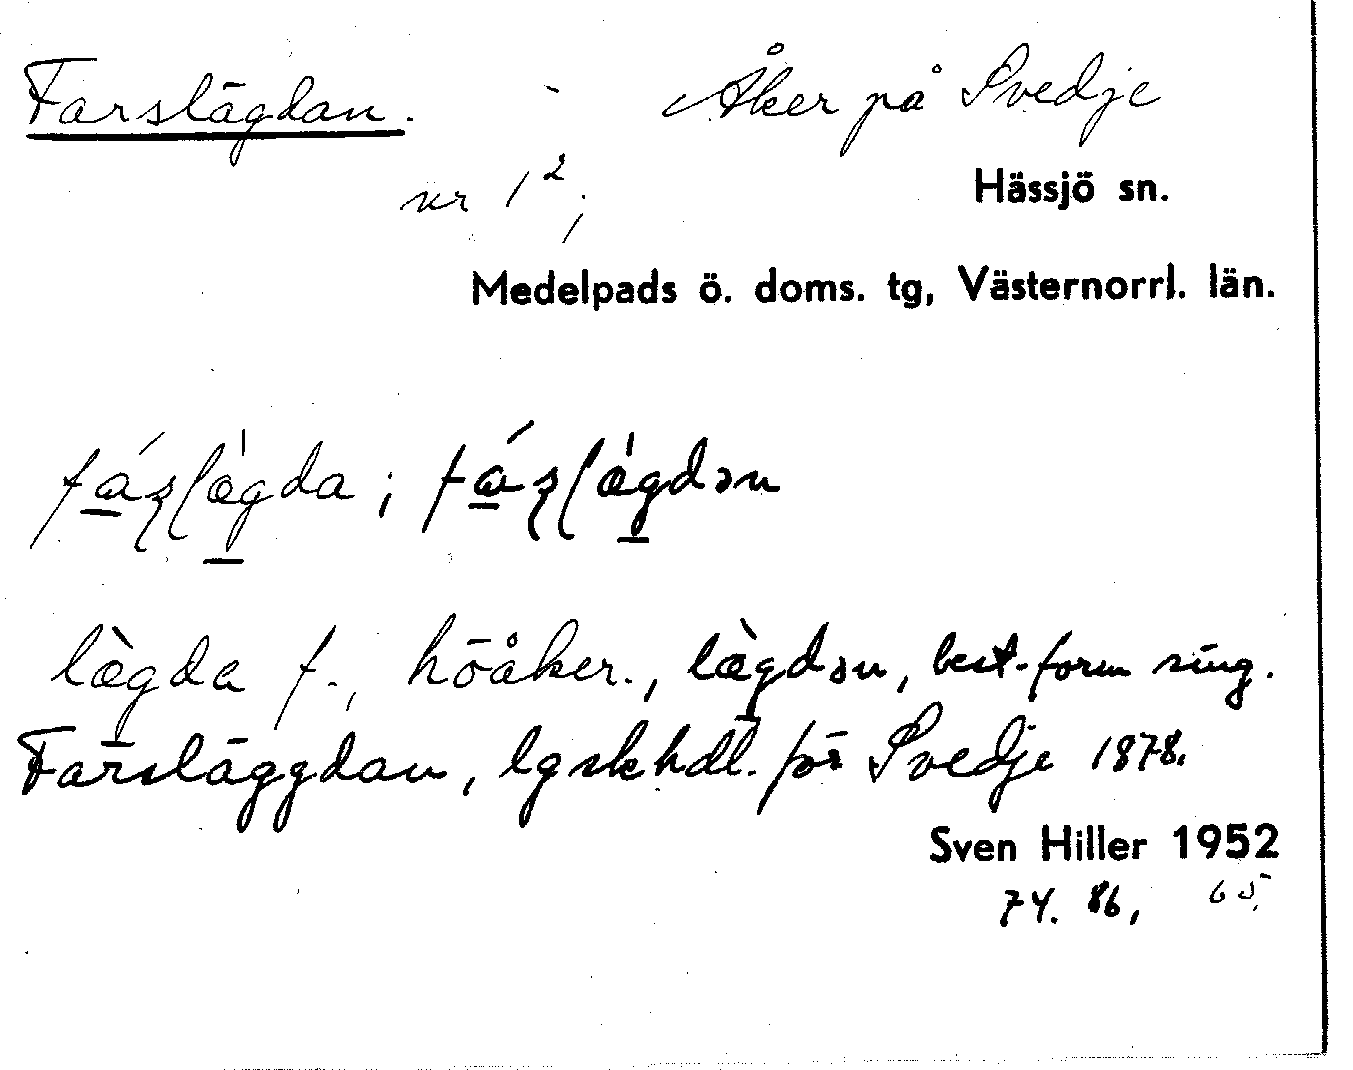 Farslägdan. - Åker på Svedje
nr 1²; Hässjö sn.
Medelpads ö. doms. tg, Västernorrl. län.
lægda f., höåker., lægdən, best. form sing.
Farsläggdan, lgskhdl. för Svedje 1878.
Sven Hiller 1952
74. 86, 65.